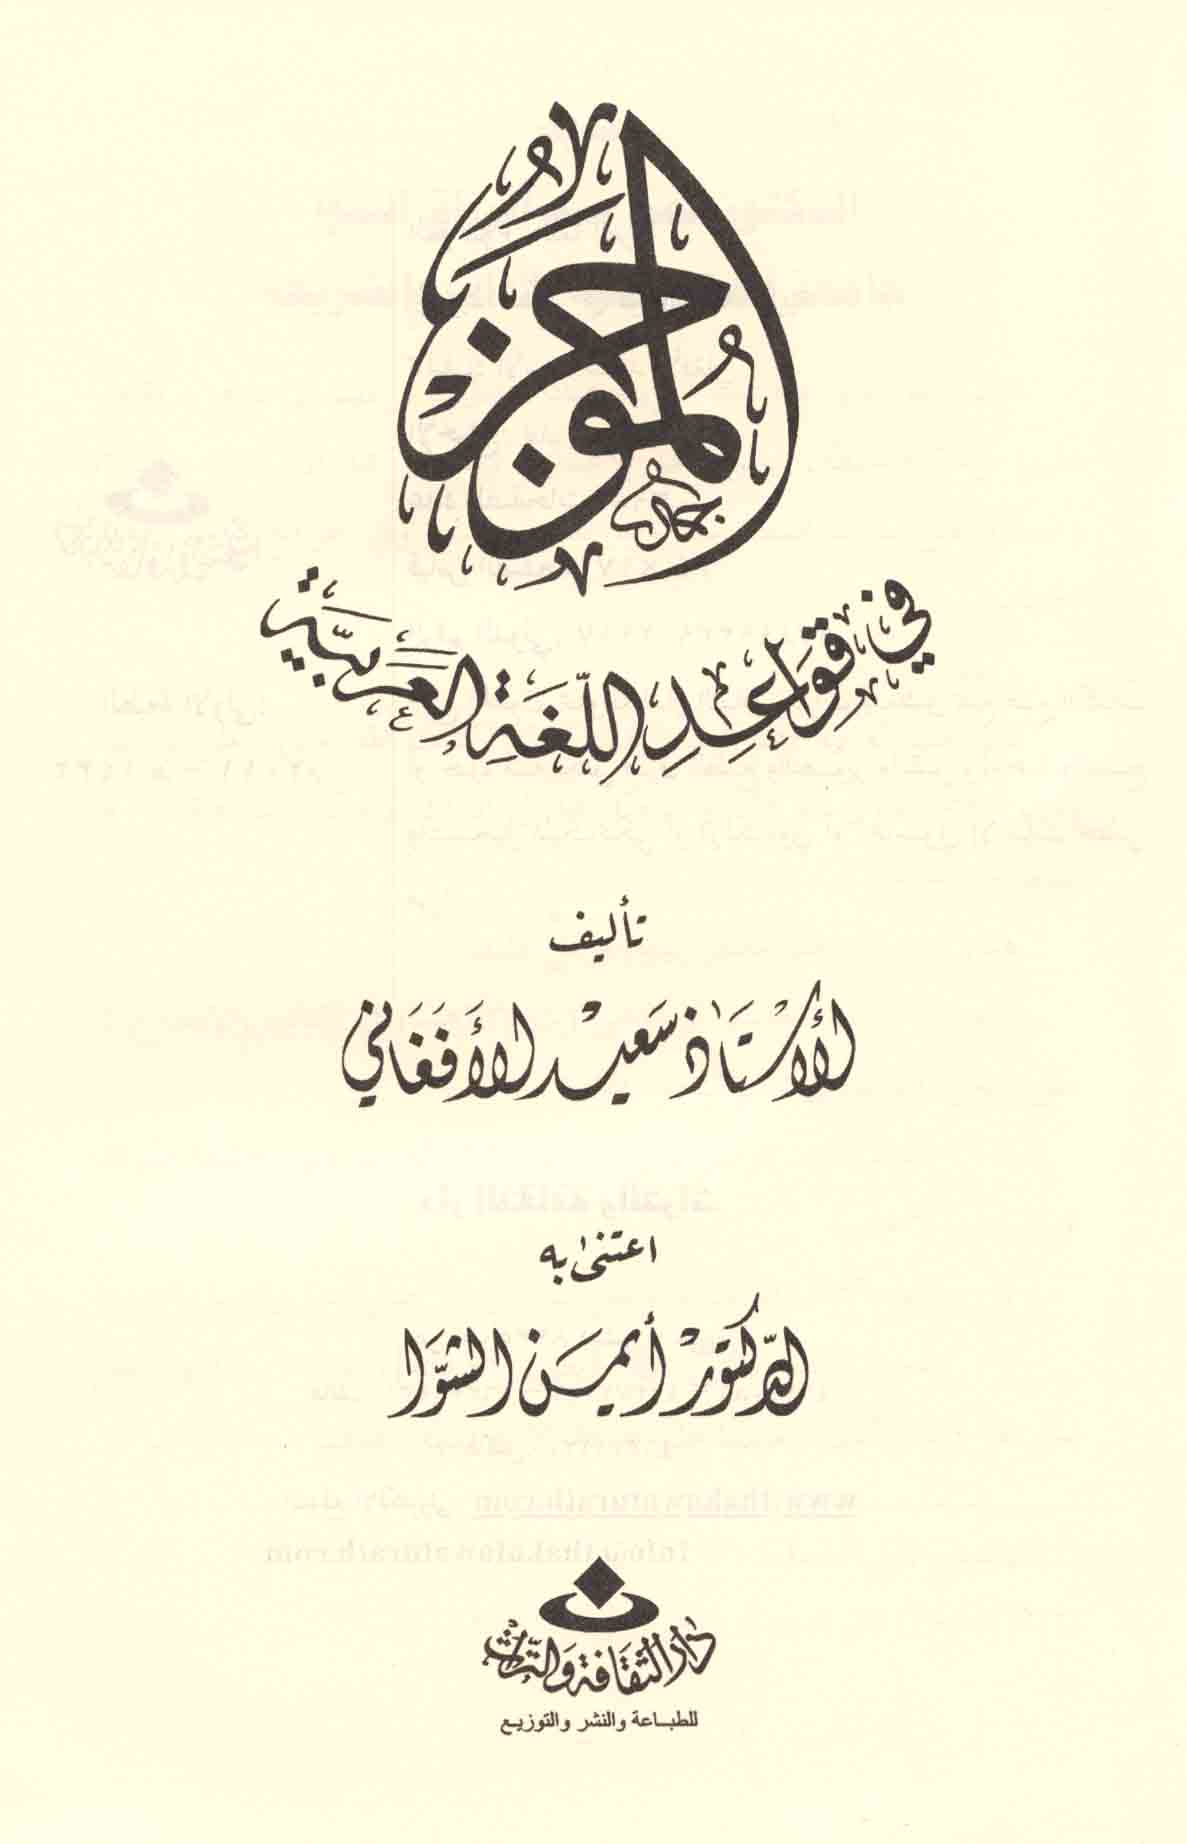 الموجز
في قَوَاعِدِ اللّغَةِ العَرَبيَّة
تأليف
الأستَاذ سَعيد الأفغَاني
اعتنى به
الدّكتور أيمَن الشوَّا
دار الثقافة والتراث
للطباعة والنشر والتوزيع